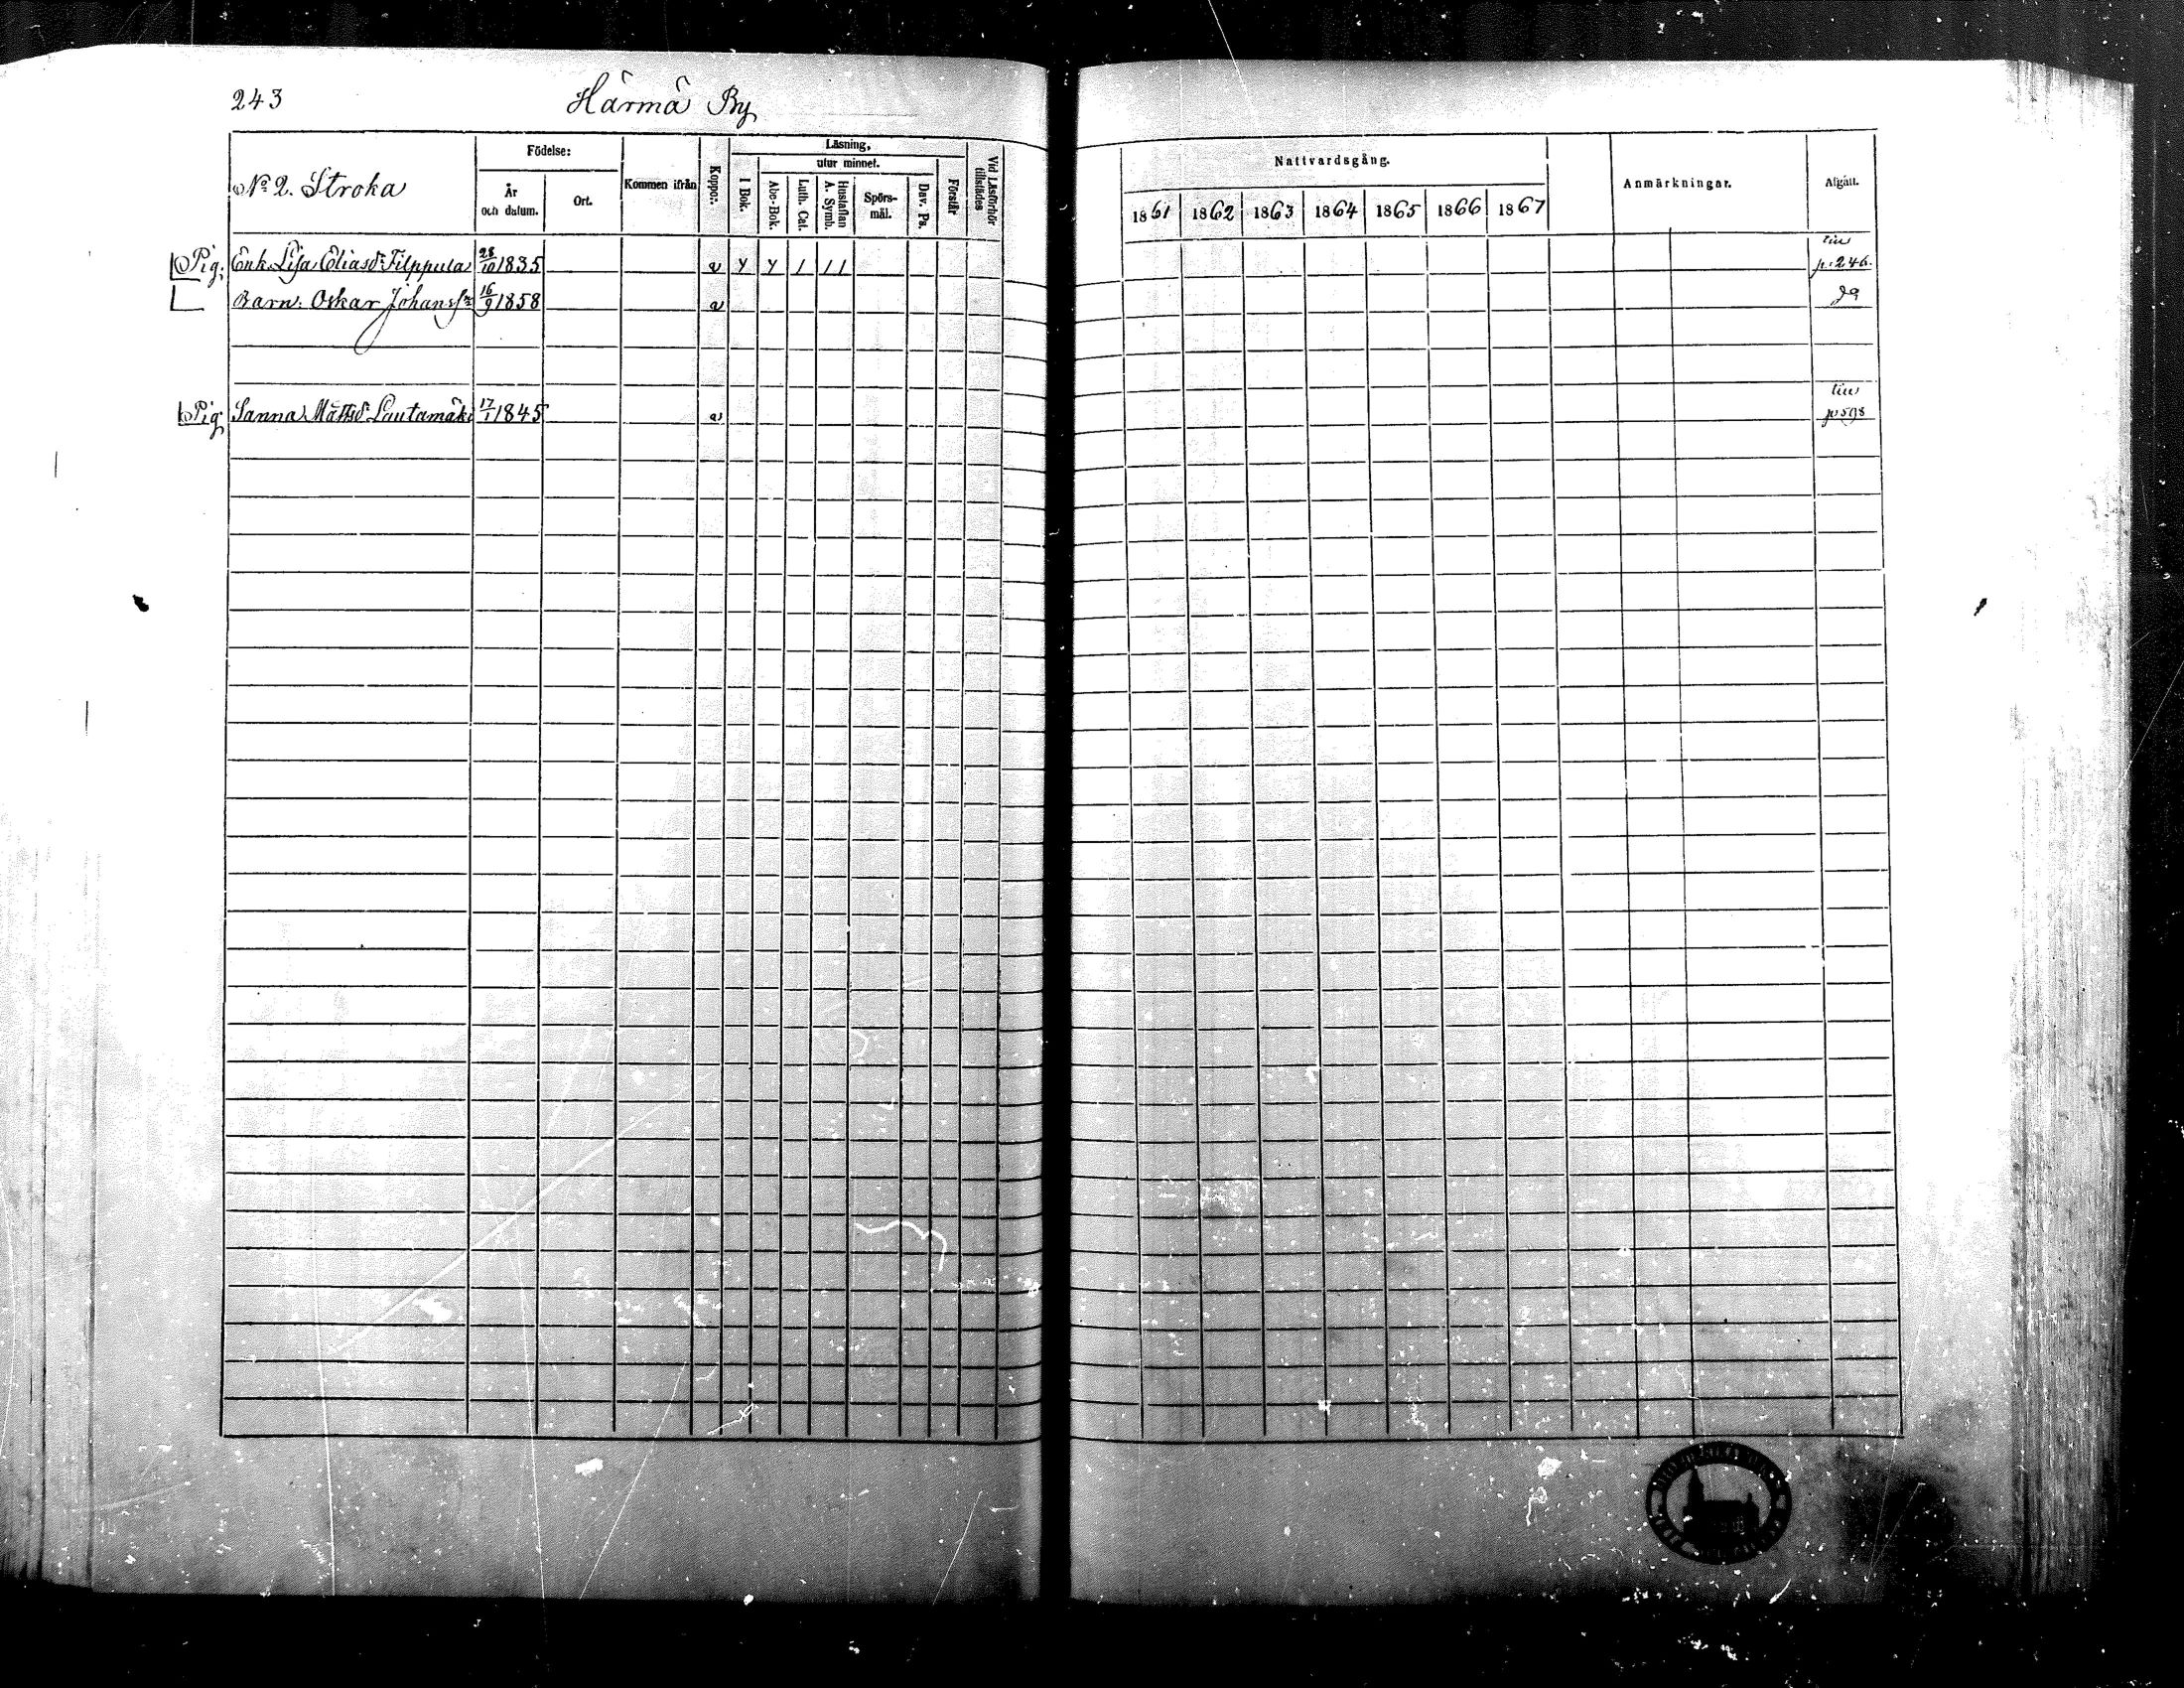 243 Härmä By
No 2. Stroka
Födelse:
År och datum.
Ort.
Kommen ifrån
Koppor.
Läsning,
I Bok.
utur minnet.
Abc-Bok.
Luth. Cat.
Hustaflan A. Symb.
Spörsmål.
Dav. Ps.
Förstår
Vid Läsförhör tillstädes
Nattvardsgång.
1861 1862 1863 1864 1865 1866 1867
Anmärkningar.
Afgått.
Pig. Enk. Lisa Eliasd: Filppula 28/10 1835 v Y Y / / / p. 246.
Barn: Oskar Johanss: 16/9 1858 v
Pig. Sanna Mattsd: Lautamäki 17/1 1845 v p 598